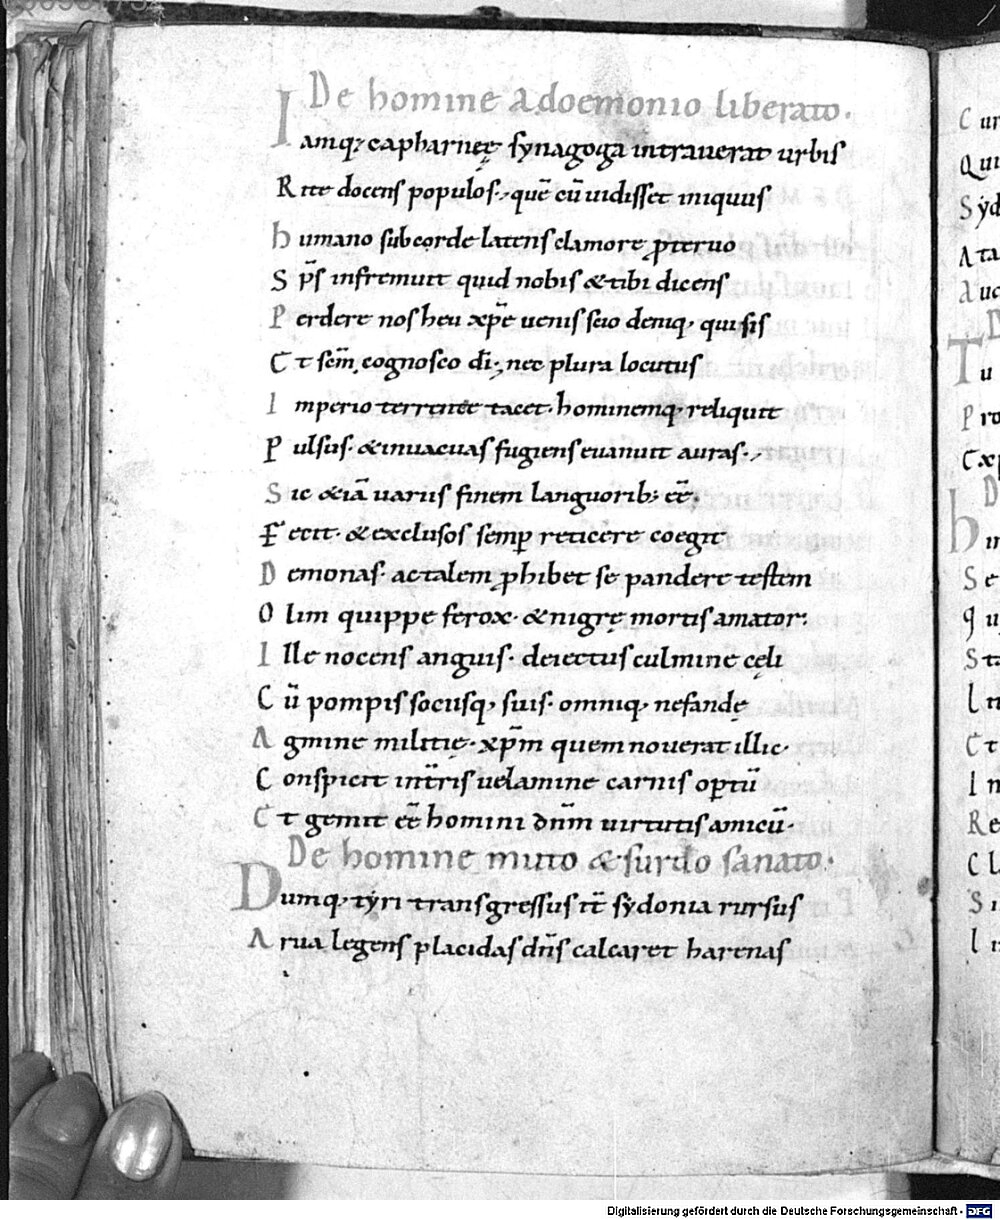 De homine a doemonio liberato.
Iamq; capharneę synagoga intrauerat urbis
Rite docens populos. quē cū uidisset iniquus
humano sub corde latens clamore ꝓteruo
Sp̄s infremuit quid nobis & tibi dicens
Perdere nos heu xp̄e uenis scio denıq; qui sis
Et sēm cognosco dī; nec plura locutus
Imperio terrente tacet. hominemq; reliquit
Pulsus. & in uacuas fugiens euanuit auras.
Sic &iā uariis finem languorib; eē;
Fecit. & exclusos semꝑ reticere coegit
Demonas. ac talem ꝓhibet se pandere testem
Olim quippe ferox. & nigrę mortis amator:
Ille nocens anguis. deiectus culmine cęli
Cū pompis sociisq; suis. omniq; nefandę
Agmine militię. xp̄m quem nouerat illic.
Conspicit int̄ris uelamine carnis opꝑtū
Et gemit eē homini dn̄m uirtutis amicū.
De homine muto & surdo sanato.
Dumq; tyri transgressus it̄ sydonia rursus
Arua legens placidas dn̄s calcaret harenas
C ur
Qui
Syd
Ata
Auc
D
Tu
Pro
Exp
D
hın
Se
qu
Sta
In
Et
In
Re
Cl
Si
In
Digitalisierung gefördert durch die Deutsche Forschungsgemeinschaft - DFG